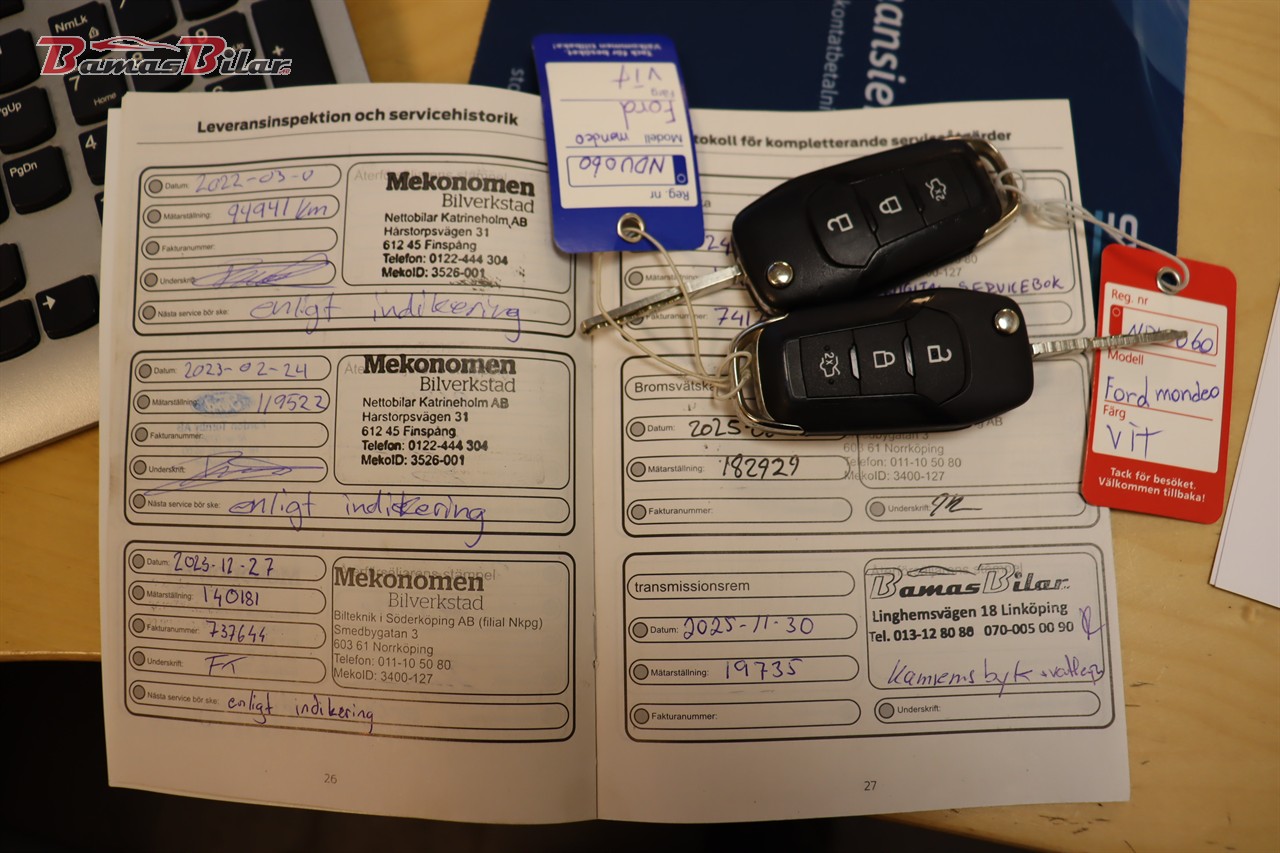 BamasBilar.se
NmLk
7
Home
PgUp
4
PgDn
+
ansie
kontatbetalni
Leveransinspektion och servicehistorik
Datum: 2022-03-0
Mätarställning: 94941 km
Fakturanummer:
Underskrift:
Nästa service bör ske: enligt indikering
Mekonomen
Bilverkstad
Nettobilar Katrineholm AB
Hårstorpsvägen 31
612 45 Finspång
Telefon: 0122-444 304
MekoID: 3526-001
Datum: 2023-02-24
Mätarställning: 119522
Fakturanummer:
Underskrift:
Nästa service bör ske: enligt indikering
Mekonomen
Bilverkstad
Nettobilar Katrineholm AB
Hårstorpsvägen 31
612 45 Finspång
Telefon: 0122-444 304
MekoID: 3526-001
Datum: 2023-12-27
Mätarställning: 140181
Fakturanummer: 737644
Underskrift: FK
Nästa service bör ske: enligt indikering
Återförsäljarens stämpel
Mekonomen
Bilverkstad
Bilteknik i Söderköping AB (filial Nkpg)
Smedbygatan 3
603 61 Norrköping
Telefon: 011-10 50 80
MekoID: 3400-127
26
Tack för besöket.
Välkommen tillbaka!
Färg vit
Ford
Modell mondeo
NDU060
Reg. nr
tokoll för kompletterande serviceåtgärder
Mätarställning:
Fakturanummer: 741
SERVICEBOK
Bromsvätska
Datum: 2025-
Mätarställning: 182929
Fakturanummer:
Smedbygatan 3
603 61 Norrköping
Telefon: 011-10 50 80
MekoID: 3400-127
Underskrift:
transmissionsrem
Datum: 2025-11-30
Mätarställning: 19735
Fakturanummer:
BamasBilar
Linghemsvägen 18 Linköping
Tel. 013-12 80 80 070-005 00 90
Kamremsbyk + vattenp
Underskrift:
27
2x
2x
Reg. nr
NDU060
Modell
Ford mondeo
Färg
Vit
Tack för besöket.
Välkommen tillbaka!